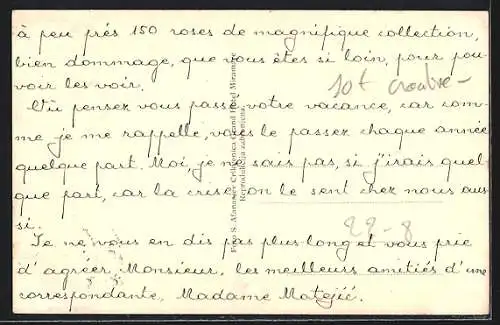 à peu près 150 roses de magnifique collection,
bien dommage, que vous êtes si loin, pour pou-
voir les voir.
Où pensez vous passer votre vacance, car com-
me je me rappelle, vous le passez chaque année
quelque part. Moi, je ne sais pas, si j'irais quel-
que part, car la crise, on le sent chez nous aus-
si.
Je ne vous en dis pas plus long et vous prie
d'agréer, Monsieur, les meilleurs amitiés d'une
correspondante, Madame Matejić.
22-8
Foto S. Afanasiev Crikvenica Grand Hôtel Miramare
Reprodukcija zabranjena